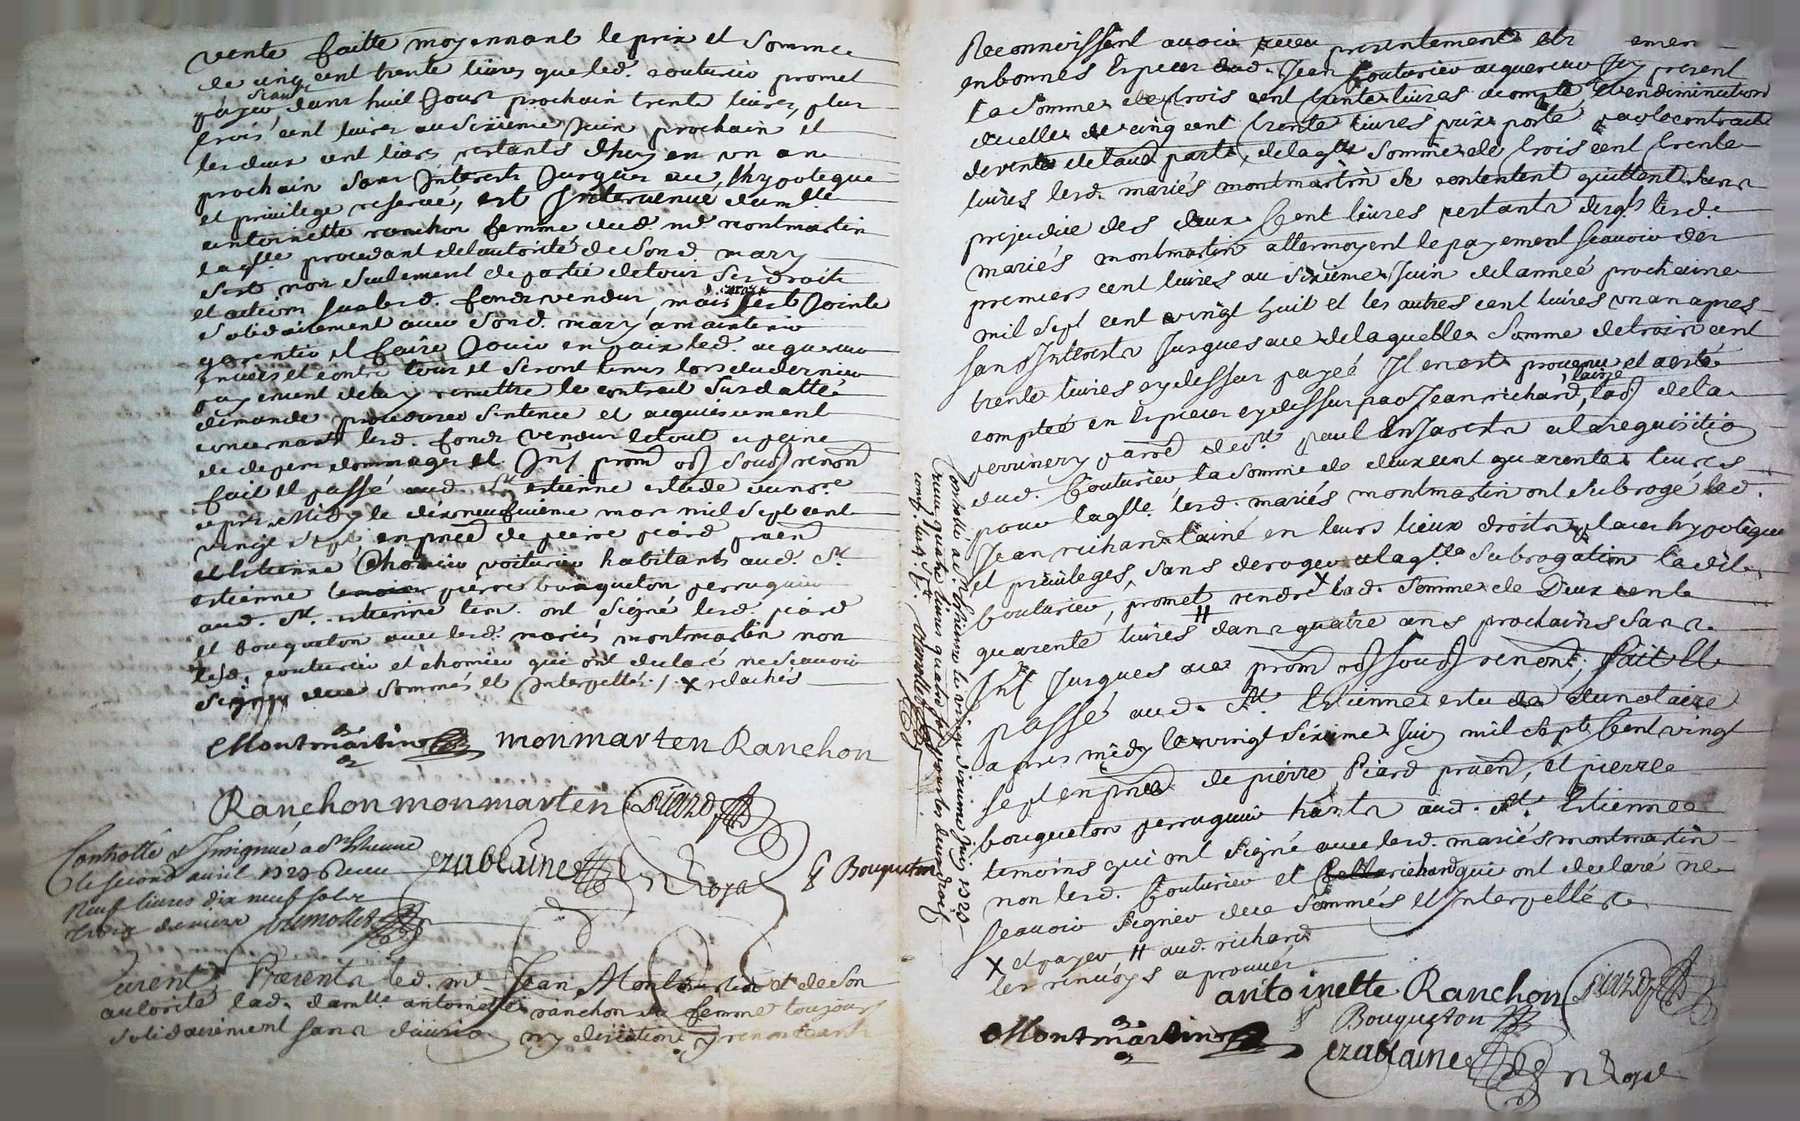 vente faitte moyennant le prix et somme
de cinq cent trente livres que led. couturier promet
payer dans huit jours prochain trente livres, plus
scavoir
trois cent livres au sixieme juin prochain et
les deux cent livres restants d'huy en un an
prochain sans interests jusques ace, lhypoteque
et privilege reservé, est intervenue damlle
antoinette ranchon femme dud. mr montmartin
laqlle procedant de lautorité de sond. mary
sest non seulement departie de tous ses droits
et actions sur lesd. fonds vendus, mais sest jointe
encore
solidairement avec sond. mary a maintenir
garentir et faire jouir en paix led. acquereur
envers et contre tous et seront tenus lors du dernier
payement de luy remettre le contrat susdatté
demande procedures sentence et acquiessement
concernants lesd. fonds vendus le tout a peine
de depens dommages et int. prom. obl. soub. renon.
fait et passé aud. St estienne estude du nore.
apres midy le dixneufvieme mars mil sept cent
vingt sept en pnce de pierre piard praen
et Estienne Chomier voiturier habitants aud. St.
estienne pierre bouqueton perruquier
aud. St. estienne tem. ont signé lesd. piard
et bouqueton avec lesd. mariés montmartin non
lesd. couturier et chomier qui ont declaré ne scavoir
signer deue sommés et interpellés / x relachés
Montmartin monmarten Ranchon
Ranchon monmarten Piard
Controllé et Insigné a St Etienne
le second avril 1727 Receu
Neuf livres dix neuf sols
trois deniers Demolle
Ezablaine n Royal
Bouqueton
Furent Presents led. mr Jean Montmartin et de son
autorité lad. damlle antoinette ranchon sa femme toujours
solidairement sans division ny discution y renonceants
Controllé a St Estienne le vingt sixieme juin 1727
Reconnoissent avoir receu presentement et
en bonnes Especes dud. Jean Couturier acquereur Icy present
la somme de trois cent trente livres acompte, et en diminution
de celle de cinq cent trente livres prix porté par le contrat
de vente de laud. part, de laqlle somme de trois cent trente
livres lesd. mariés montmartin se contentent quittent sans
prejudice des deux Cent livres restants desqls lesd.
mariés montmartin attermoyent le payement scavoir des
premiers cent livres au sixieme Juin de lanneé prochaine
mil sept cent vingt huit et les autres cent livres un an apres
sans Interests Jusques ace de laquelle somme de trois cent
trente livres cydessus payeé Il en est provenu et a esté
compteé en Especes cydessus par Jean richard laisné de la
pervinery parr. de St. paul En Jarests a la requisitio
dud. Couturier la somme de deux cent quarente livres
pour laqlle lesd. mariés montmartin ont subrogé led.
Jean richard lainé en leurs lieux droits place hypoteque
et privileges, sans deroger a laqlle subrogation led.
Couturier, promet rendre x lad. somme de Deux cent
quarente livres H dans quatre ans prochains sans
Int. Jusques ace prom. obl. soub. renon., fait et
passé aud. St. Estienne estude du notaire
apres midy le vingt sixieme Juin mil sept Cent vingt
sept en pnce de pierre Piard praen, et pierre
bouqueton perruquier hants aud. St. Estienne
temoins qui ont signé avec lesd. mariés montmartin
non lesd. Couturier et richard qui ont declaré ne
scavoir signer deue sommés et Interpellés
x et payer H aud. richard
les renvoys aprouvés
antoinette Ranchon Piard
Montmartin Bouqueton
Ezablaine n Royal